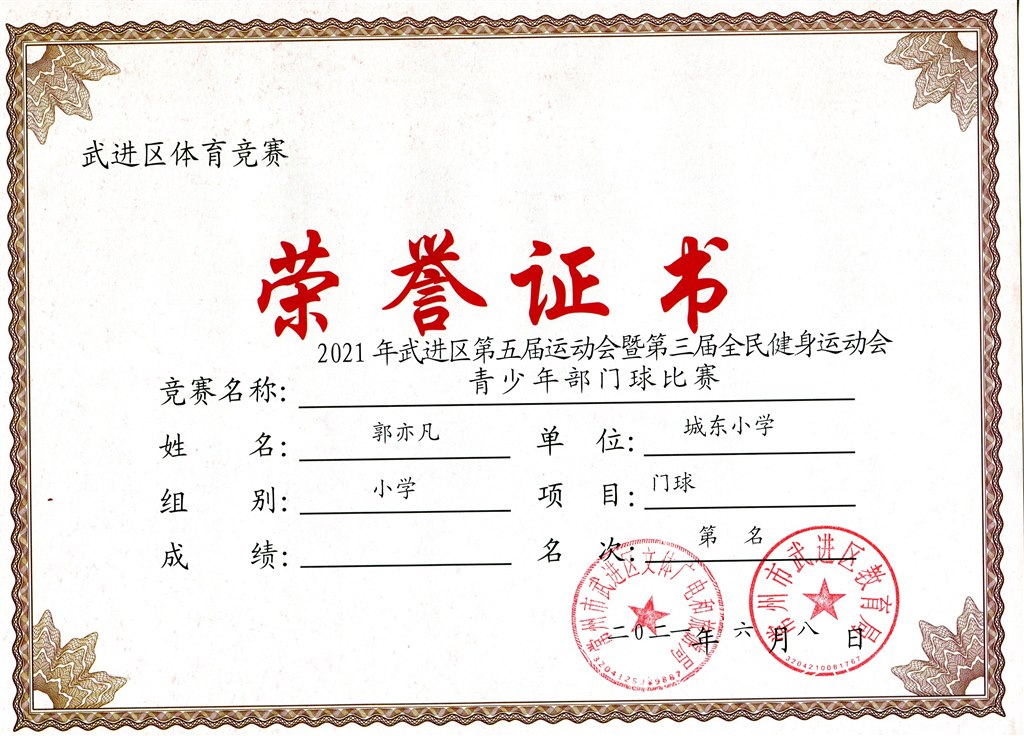 武进区体育竞赛
荣誉证书
2021年武进区第五届运动会暨第三届全民健身运动会
竞赛名称：青少年部门球比赛
姓名：郭亦凡 单位：城东小学
组别：小学 项目：门球
成绩： 名次：第 名
常州市武进区文体广电和旅游局
常州市武进区教育局
二〇二一年六月八日
3204210081767